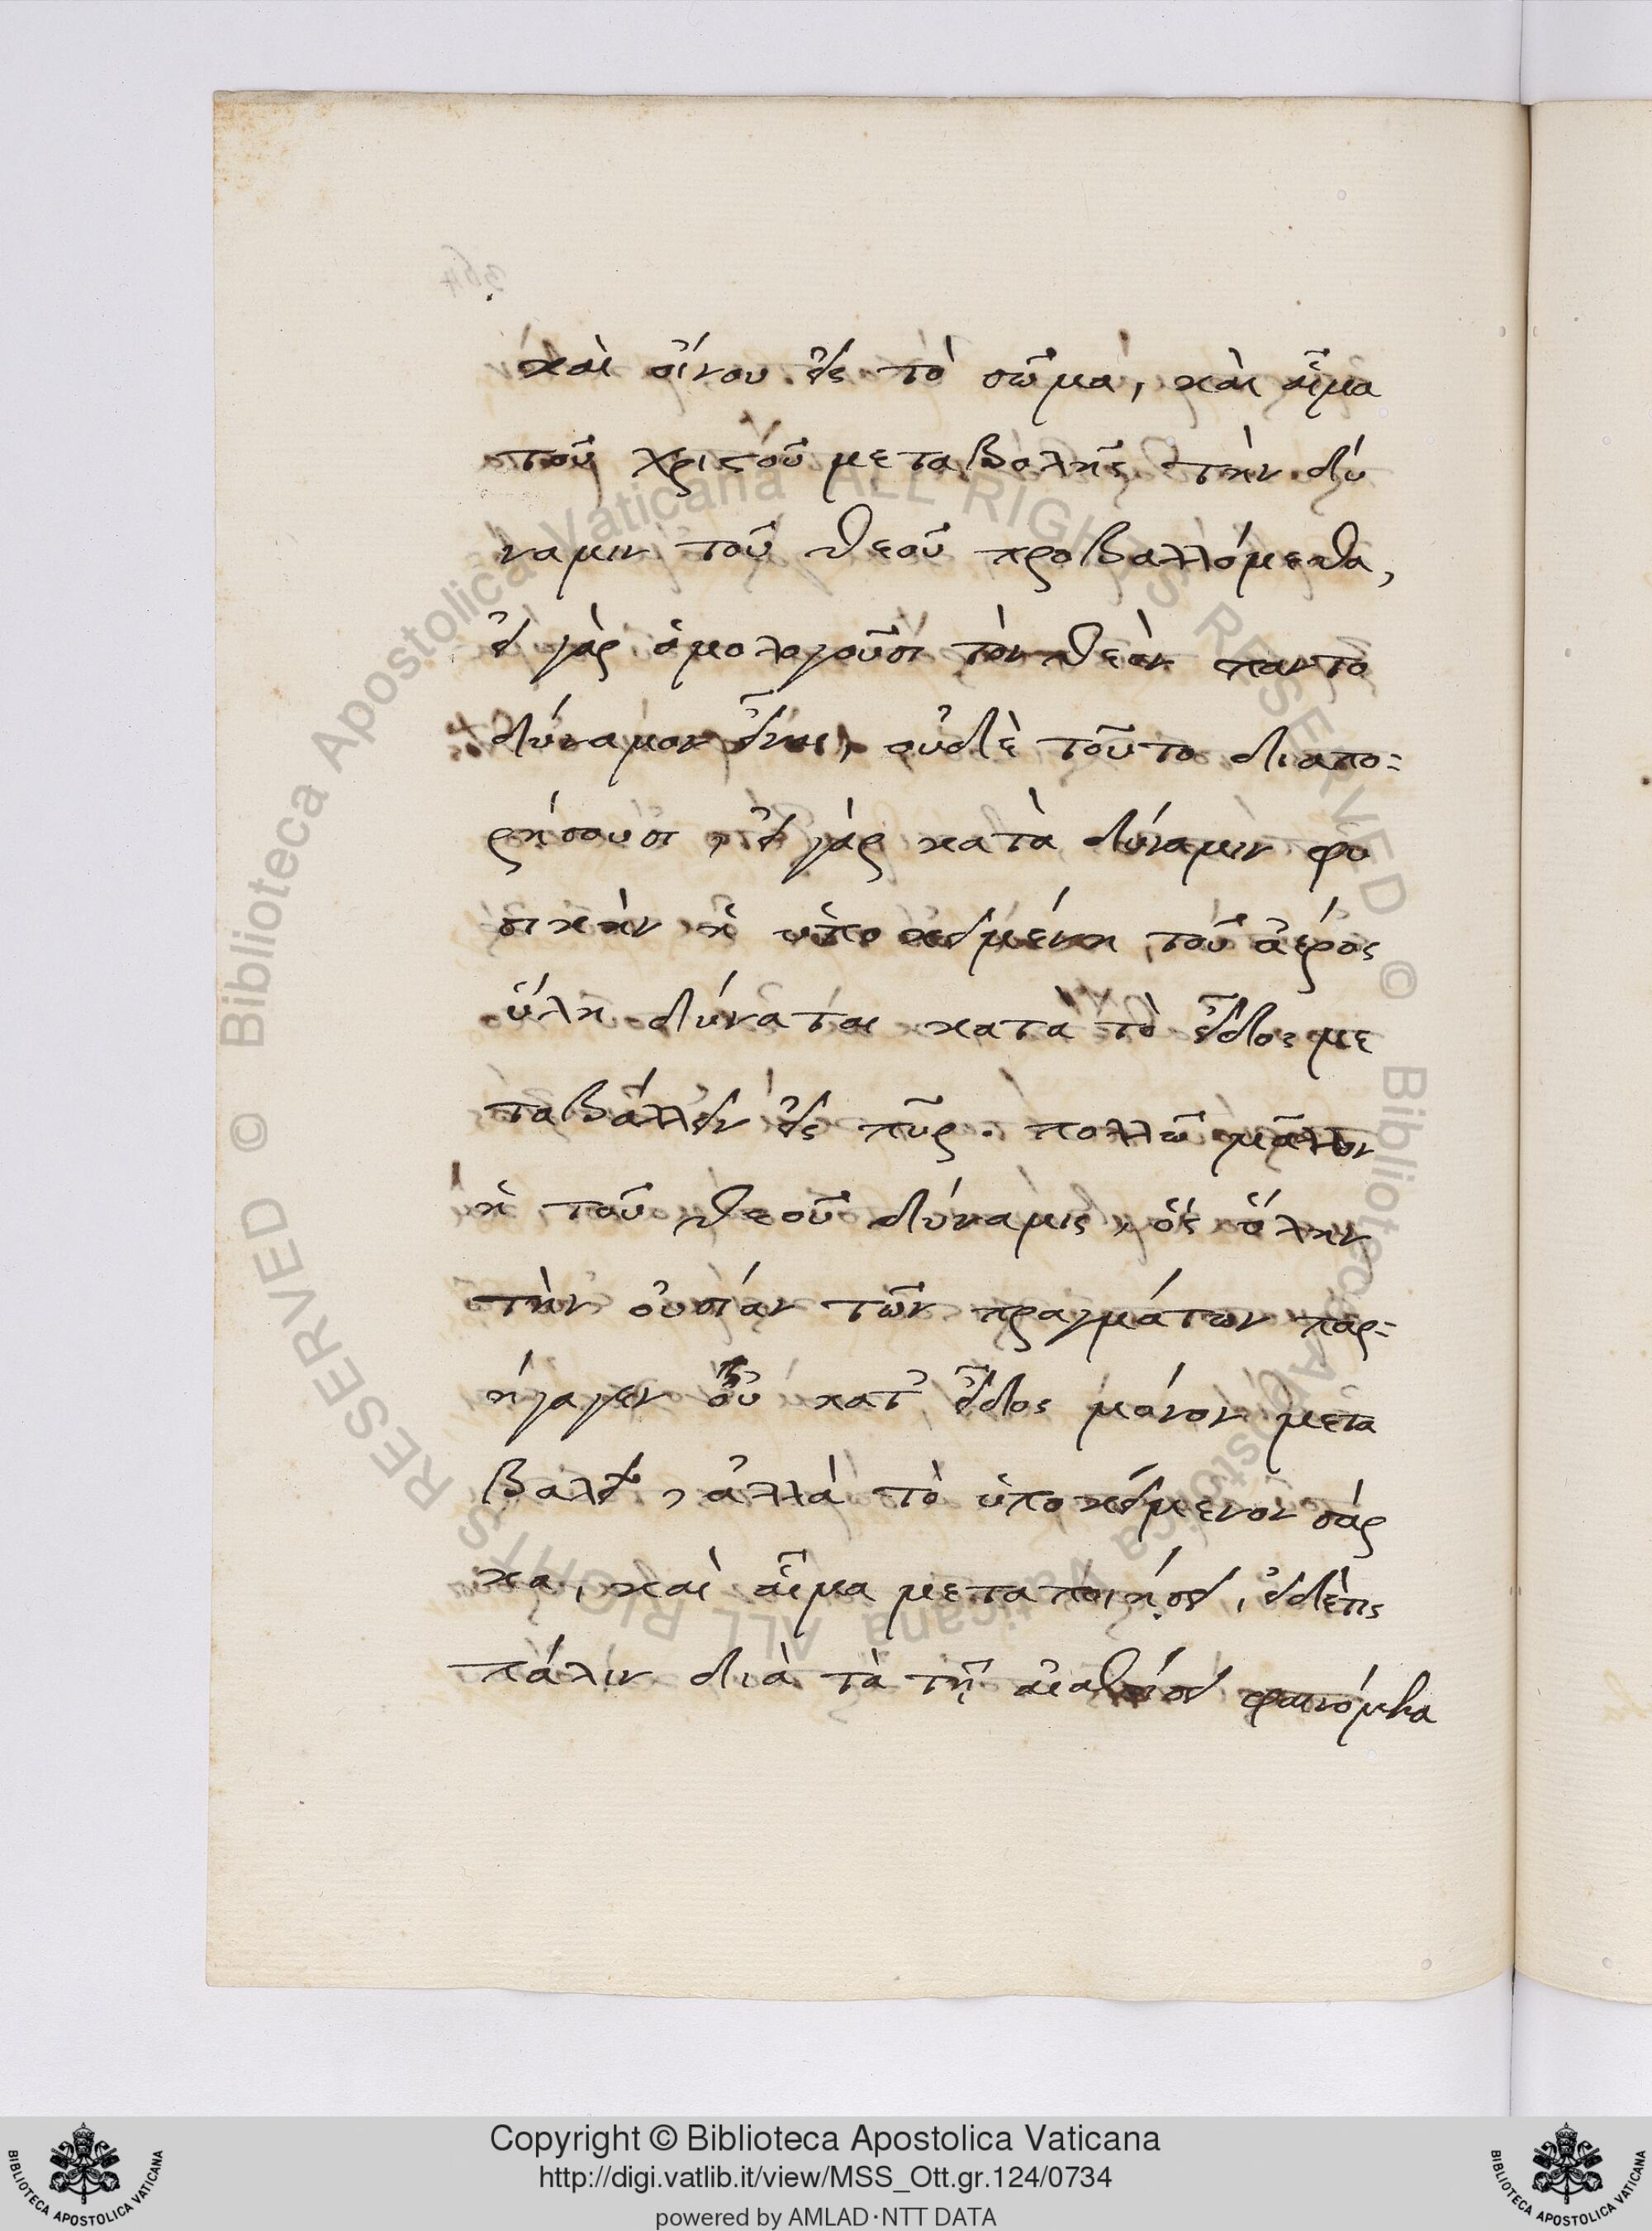 καὶ οἴνου εἰς τὸ σῶμα, καὶ αἷμα
τοῦ χριστοῦ μεταβολῆς τὴν δύ
ναμιν τοῦ θεοῦ προβαλλόμεθα,
εἰ γὰρ ὁμολογοῦσι τὸν θεὸν παντο
δύναμον εἶναι, οὐδὲ τοῦτο διαπο=
ρήσουσι, εἰ γὰρ κατὰ δύναμιν φυ
σικὴν ἡ ὑποκειμένη τοῦ ἀέρος
ὕλη δύναται κατὰ τὸ εἶδος με
ταβάλλειν εἰς πῦρ. πολλῶ μᾶλλον
ἡ τοῦ θεοῦ δύναμις, ὃς ὅλην
τὴν οὐσίαν τῶν πραγμάτων παρ=
ήγαγεν οὐ κατ' εἶδος μόνον μετα
βαλεῖ, ἀλλὰ τὸ ὑποκείμενον σάρ
κα, καὶ αἷμα μεταποιήσει, εἰ δέ τις
πάλιν διὰ τὰ τῇ αἰσθήσει φαινόμενα
Copyright © Biblioteca Apostolica Vaticana
http://digi.vatlib.it/view/MSS_Ott.gr.124/0734
powered by AMLAD·NTT DATA